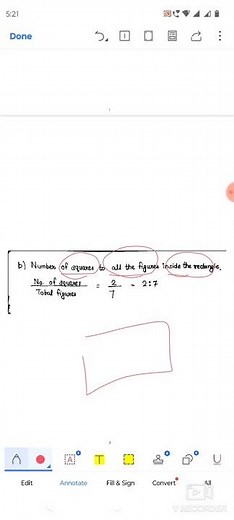 5:21
Done
b) Number of squares to all the figures inside the rectangle.
No. of squares / Total figures = 2/7 - 2:7
Edit Annotate Fill & Sign Convert All